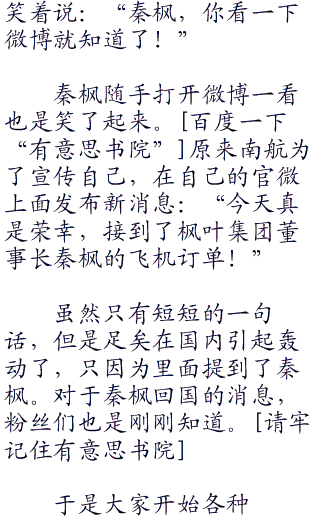 笑着说：“秦枫，你看一下
微博就知道了！”
秦枫随手打开微博一看
也是笑了起来。[百度一下
“有意思书院”]原来南航为
了宣传自己，在自己的官微
上面发布新消息：“今天真
是荣幸，接到了枫叶集团董
事长秦枫的飞机订单！”
虽然只有短短的一句
话，但是足矣在国内引起轰
动了，只因为里面提到了秦
枫。对于秦枫回国的消息，
粉丝们也是刚刚知道。[请牢
记住有意思书院]
于是大家开始各种